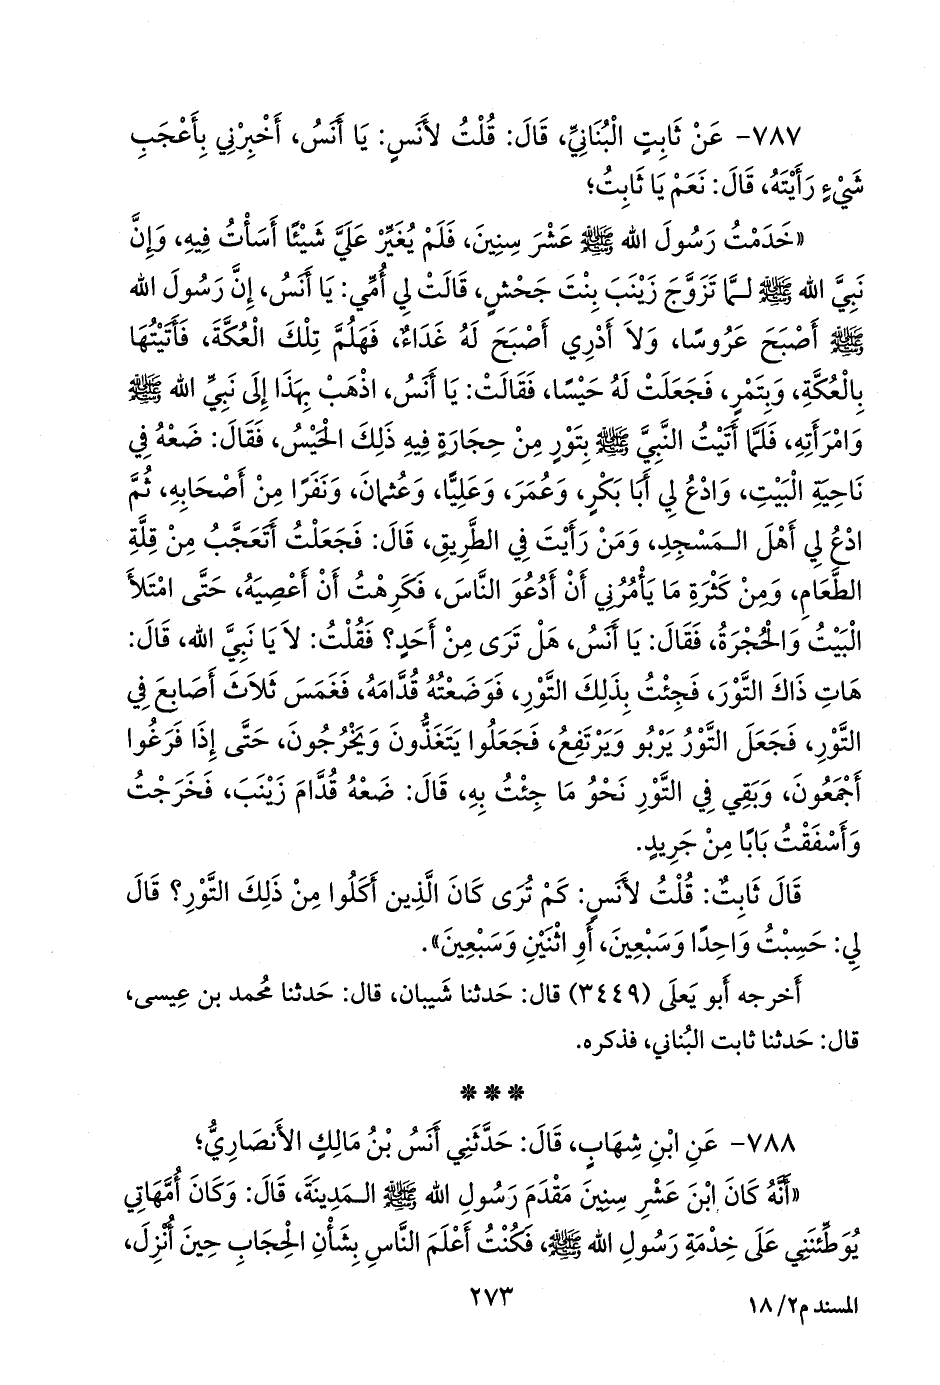 ٧٨٧- عَنْ ثَابِتٍ الْبُنَانِيِّ، قَالَ: قُلْتُ لأَنَسٍ: يَا أَنَسُ، أَخْبِرْنِي بِأَعْجَبِ
شَيْءٍ رَأَيْتَهُ، قَالَ: نَعَمْ يَا ثَابِتُ؛
«خَدَمْتُ رَسُولَ الله ﷺ عَشْرَ سِنِينَ، فَلَمْ يُغَيِّرْ عَلَيَّ شَيْئًا أَسَأْتُ فِيهِ، وَإِنَّ
نَبِيَّ الله ﷺ لَـمَّا تَزَوَّجَ زَيْنَبَ بِنْتَ جَحْشٍ، قَالَتْ لِي أُمِّي: يَا أَنَسُ، إِنَّ رَسُولَ الله
ﷺ أَصْبَحَ عَرُوسًا، وَلاَ أَدْرِي أَصْبَحَ لَهُ غَدَاءٌ، فَهَلُمَّ تِلْكَ الْعُكَّةَ، فَأَتَيْتُهَا
بِالْعُكَّةِ، وَبِتَمْرٍ، فَجَعَلَتْ لَهُ حَيْسًا، فَقَالَتْ: يَا أَنَسُ، اذْهَبْ بِهَذَا إِلَى نَبِيِّ الله ﷺ
وَامْرَأَتِهِ، فَلَمَّا أَتَيْتُ النَّبِيَّ ﷺ بِتَوْرٍ مِنْ حِجَارَةٍ فِيهِ ذَلِكَ الْحَيْسُ، فَقَالَ: ضَعْهُ فِي
نَاحِيَةِ الْبَيْتِ، وَادْعُ لِي أَبَا بَكْرٍ، وَعُمَرَ، وَعَلِيًّا، وَعُثمانَ، وَنَفَرًا مِنْ أَصْحَابِهِ، ثُمَّ
ادْعُ لِي أَهْلَ الـمَسْجِدِ، وَمَنْ رَأَيْتَ فِي الطَّرِيقِ، قَالَ: فَجَعَلْتُ أَتَعَجَّبُ مِنْ قِلَّةِ
الطَّعَامِ، وَمِنْ كَثْرَةِ مَا يَأْمُرُنِي أَنْ أَدْعُوَ النَّاسَ، فَكَرِهْتُ أَنْ أَعْصِيَهُ، حَتَّى امْتَلأَ
الْبَيْتُ وَالْحُجْرَةُ، فَقَالَ: يَا أَنَسُ، هَلْ تَرَى مِنْ أَحَدٍ؟ فَقُلْتُ: لاَ يَا نَبِيَّ الله، قَالَ:
هَاتِ ذَاكَ التَّوْرَ، فَجِئْتُ بِذَلِكَ التَّوْرِ، فَوَضَعْتُهُ قُدَّامَهُ، فَغَمَسَ ثَلاَثَ أَصَابِعَ فِي
التَّوْرِ، فَجَعَلَ التَّوْرُ يَرْبُو وَيَرْتَفِعُ، فَجَعَلُوا يَتَغَذُّونَ وَيَخْرُجُونَ، حَتَّى إِذَا فَرَغُوا
أَجْمَعُونَ، وَبَقِي فِي التَّوْرِ نَحْوُ مَا جِئْتُ بِهِ، قَالَ: ضَعْهُ قُدَّامَ زَيْنَبَ، فَخَرَجْتُ
وَأَسْفَقْتُ بَابًا مِنْ جَرِيدٍ.
قَالَ ثَابِتٌ: قُلْتُ لأَنَسٍ: كَمْ تُرَى كَانَ الَّذِين أَكَلُوا مِنْ ذَلِكَ التَّوْرِ؟ قَالَ
لِي: حَسِبْتُ وَاحِدًا وَسَبْعِينَ، أَوِ اثْنَيْنِ وَسَبْعِينَ».
أَخرجه أَبو يَعلَى (٣٤٤٩) قال: حَدثنا شَيبان، قال: حَدثنا مُحمد بن عِيسى،
قال: حَدثنا ثابت البُناني، فذكره.
* * *
٧٨٨- عَنِ ابْنِ شِهَابٍ، قَالَ: حَدَّثَنِي أَنَسُ بْنُ مَالِكٍ الأَنصَارِيُّ؛
«أَنَّهُ كَانَ ابْنَ عَشْرِ سِنِينَ مَقْدَمَ رَسُولِ الله ﷺ الـمَدِينَةَ، قَالَ: وَكَانَ أُمَّهَاتِي
يُوَطِّئْنَنِي عَلَى خِدْمَةِ رَسُولِ الله ﷺ، فَكُنْتُ أَعْلَمَ النَّاسِ بِشَأْنِ الْحِجَابِ حِينَ أُنْزِلَ،
٢٧٣
المسند م٢/ ١٨